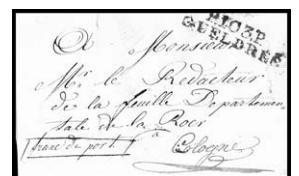 P103P
GUELDRES
A Monsieur
Mr. le Redacteur
de la feuille Departemen-
tale de la Roer
à
franc de port. Cologne